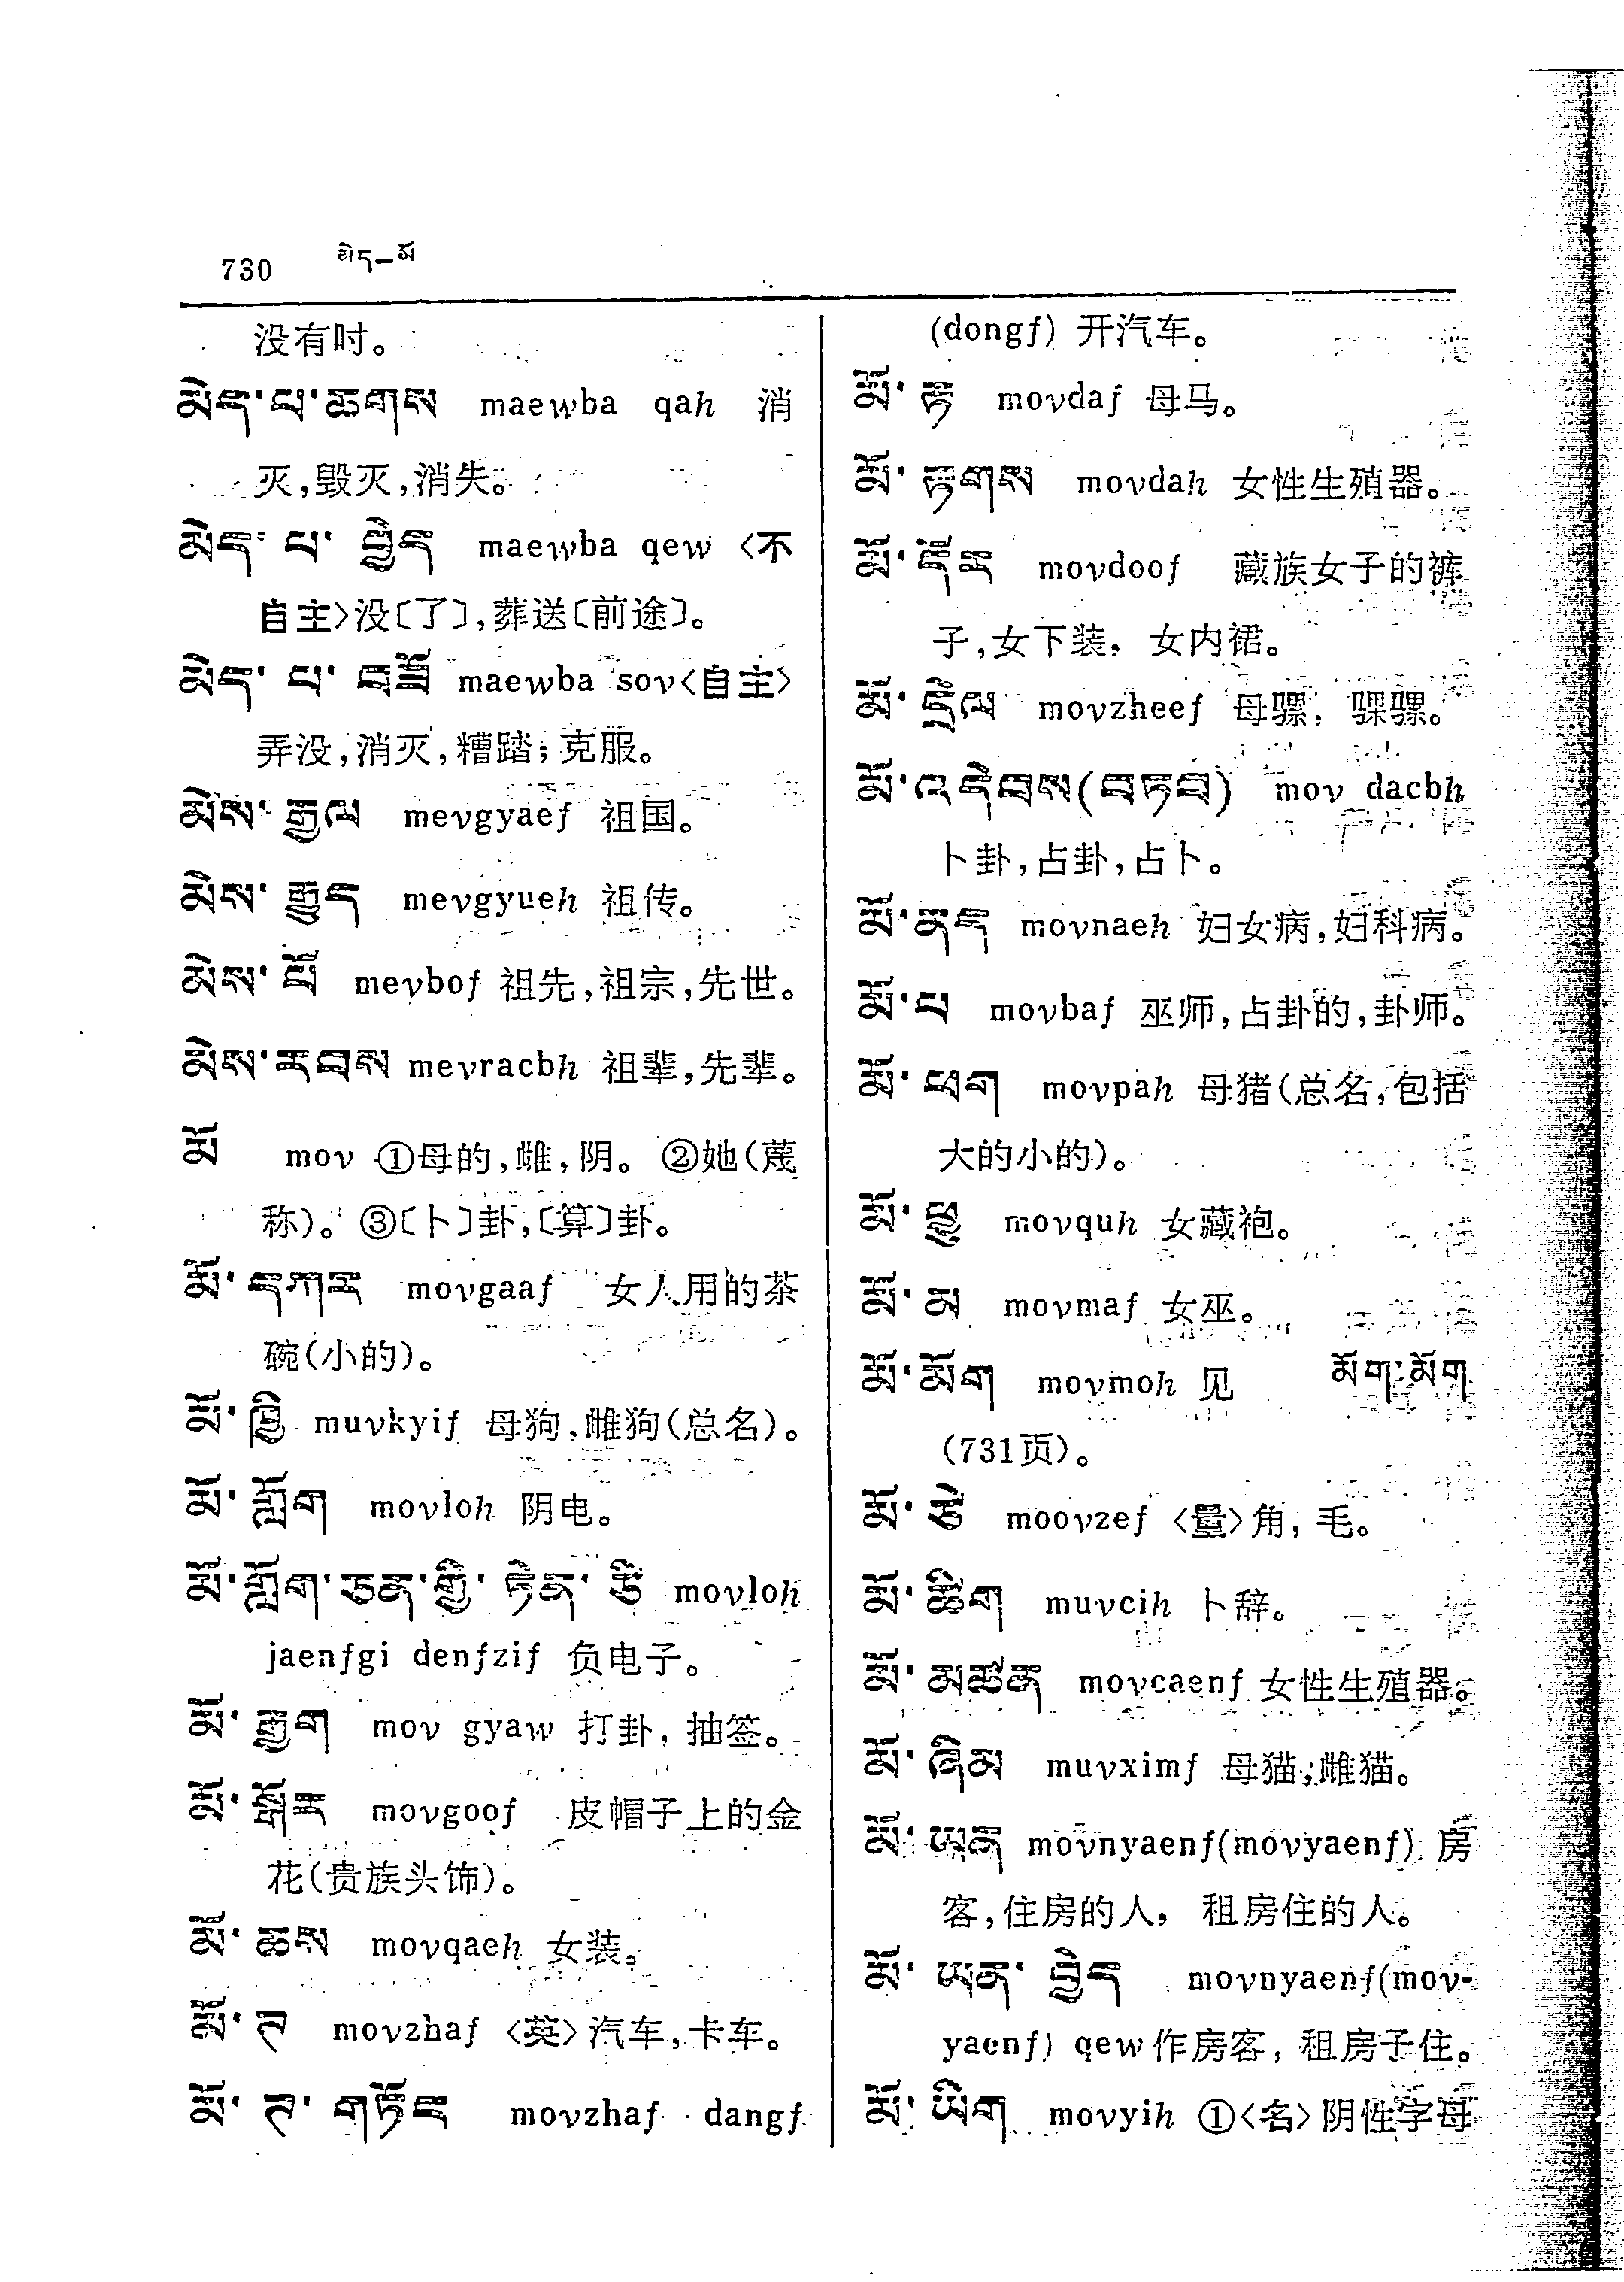 730 མེད—མོ
没有时。
མེད་པ་ཆགས maewba qah 消
灭,毁灭,消失。
མེད་པ་བྱེད maewba qew 〈不
自主〉没〔了〕,葬送〔前途〕。
མེད་པ་བཟོ maewba sov〈自主〉
弄没,消灭,糟踏;克服。
མེས་རྒྱལ mevgyaef 祖国。
མེས་རྒྱུད mevgyueh 祖传。
མེས་པོ mevbof 祖先,祖宗,先世。
མེས་རབས mevracbh 祖辈,先辈。
མོ mov ①母的,雌,阴。②她(蔑
称)。③〔卜〕卦,〔算〕卦。
མོ་དཀར movgaaf 女人用的茶
碗(小的)。
མོ་ཁྱི muvkyif 母狗,雌狗(总名)。
མོ་གློག movloh 阴电。
མོ་གློག་ཅན་གྱི་ཏེན་ཙི movloh
jaenfgi denfzif 负电子。
མོ་རྒྱག mov gyaw 打卦,抽签。
མོ་སྒོར movgoof 皮帽子上的金
花(贵族头饰)。
མོ་ཆས movqaeh 女装。
མོ་ཊ movzhaf 〈英〉汽车,卡车。
མོ་ཊ་གཏོང movzhaf dangf
(dongf) 开汽车。
མོ་རྟ movdaf 母马。
མོ་རྟགས movdah 女性生殖器。
མོ་དོར movdoof 藏族女子的裤
子,女下装,女内裙。
མོ་དྲེལ movzheef 母骡,骒骡。
མོ་འདེབས(བཏབ) mov dacbh
卜卦,占卦,占卜。
མོ་ནད movnaeh 妇女病,妇科病。
མོ་པ movbaf 巫师,占卦的,卦师。
མོ་ཕག movpah 母猪(总名,包括
大的小的)。
མོ་ཕྱུ movquh 女藏袍。
མོ་མ movmaf 女巫。
མོ་མོག movmoh 见 མོག་མོག
(731页)。
མོ་ཙེ moovzef 〈量〉角,毛。
མོ་ཚིག muvcih 卜辞。
མོ་མཚན movcaenf 女性生殖器。
མོ་ཞིམ muvximf 母猫;雌猫。
མོ་ཡན movnyaenf(movyaenf) 房
客,住房的人,租房住的人。
མོ་ཡན་བྱེད movnyaenf(mov-
yaenf) qew 作房客,租房子住。
མོ་ཡིག movyih ①〈名〉阴性字母